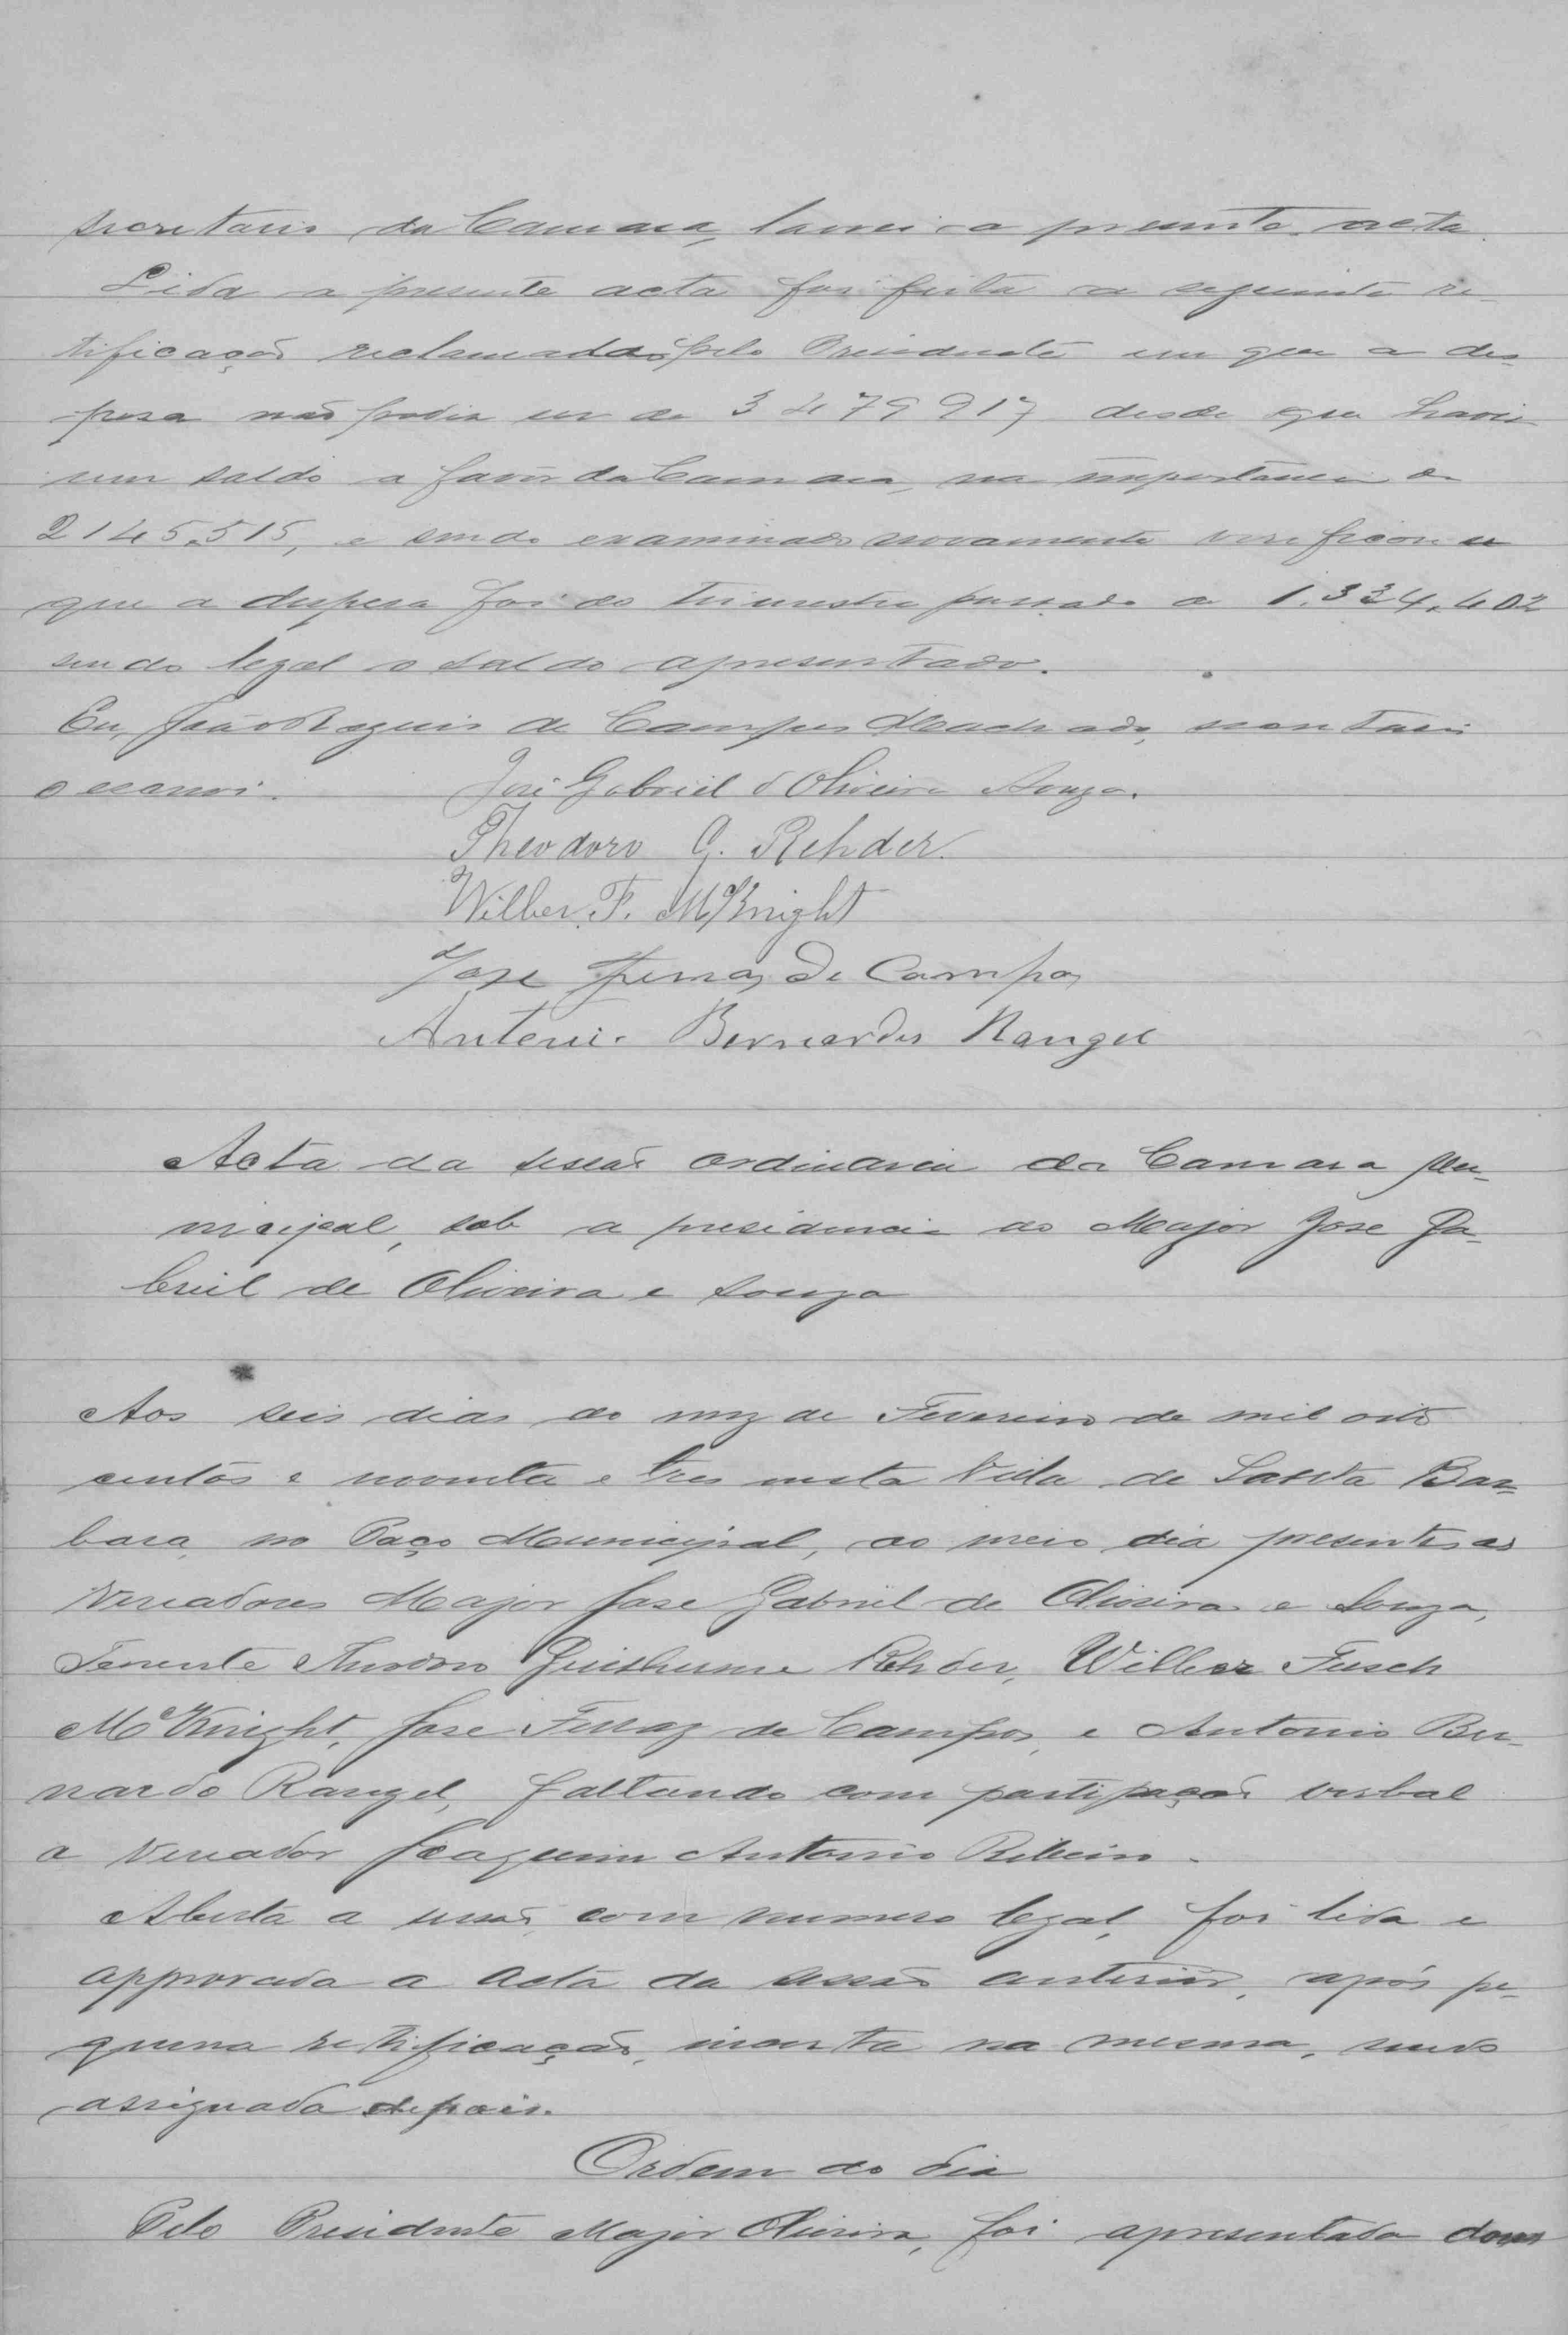 secretario da Camara, lavrei a presente acta.
Lida a presente acta foi feita a seguinte re-
tificação reclamada pelo Presidente em que a des-
pesa não podia ser de 3479917 desde que havia
um saldo a favôr da Camara, na importancia de
2145.515, e sendo examinado novamente verificou se
que a despesa foi do trimestre passado a 1.334.402
sendo legal o saldo apresentado.
Eu, João de Campos Machado, secretario
o escrevi. José Gabriel d'Oliveira Souza.
Theodoro G. Rehder.
Wilber F. McKnight
Jose Ferraz de Campos
Antonio Bernardes Rangel
Acta da sessão ordinaria da Camara Mu-
nicipal, sob a presidencia do Major Jose Ga-
briel de Oliveira e Souza
Aos seis dias do mez de Fevereiro de mil oito
centos e noventa e tres nesta Villa de Santa Bar-
bara, no Paço Municipal, ao meio dia presentes os
Vereadores Major Jose Gabriel de Oliveira e Souza,
Tenente Theodoro Guilherme Rehder, Wilber Fusch
McKnight, Jose Ferraz de Campos, e Antonio Ber-
nardo Rangel, faltando com partipação verbal
o Vereador Joaquim Antonio Ribeiro.
Aberta a sessão, com numero legal, foi lida e
approvada a acta da sessão anterior, após pe-
quena retificação, inserta na mesma, sendo
assignada depois.
Ordem do dia
Pelo Presidente Major Oliveira, foi apresentada dous